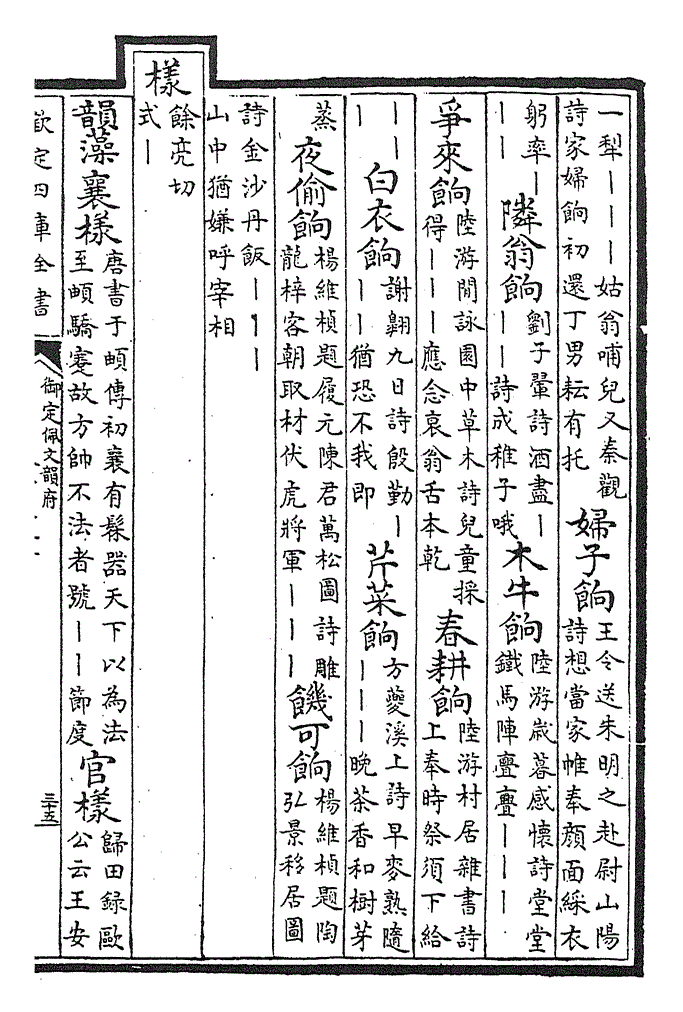 一犁｜｜｜姑翁哺兒又秦觀
詩家婦餉初還丁男耘有托
婦子餉
王令送朱明之赴尉山陽
詩想當家帷奉顏面綵衣
躬率｜
｜｜
隣翁餉
劉子翬詩酒盡｜
｜｜詩成稚子哦
木牛餉
陸游歲暮感懷詩堂堂
鐵馬陣亹亹｜｜｜
爭來餉
陸游閒詠園中草木詩兒童採
得｜｜｜應念衰翁舌本乾
春耕餉
陸游村居雜書詩
上奉時祭須下給
｜｜
｜
白衣餉
謝翺九日詩殷勤｜
｜｜猶恐不我即
芹菜餉
方夔溪上詩早麥熟隨
｜｜｜晚茶香和樹芽
蒸
夜偷餉
楊維楨題履元陳君萬松圖詩雕
龍梓客朝取材伏虎將軍｜｜｜
饑可餉
楊維楨題陶
弘景移居圖
詩金沙丹飯｜｜｜
山中猶嫌呼宰相
樣
餘亮切
式｜
韻藻襄樣
唐書于頔傳初襄有髹器天下以為法
至頔驕蹇故方帥不法者號｜｜節度
官樣
歸田錄歐
公云王安
欽定四庫全書
御定佩文韻府
三十五